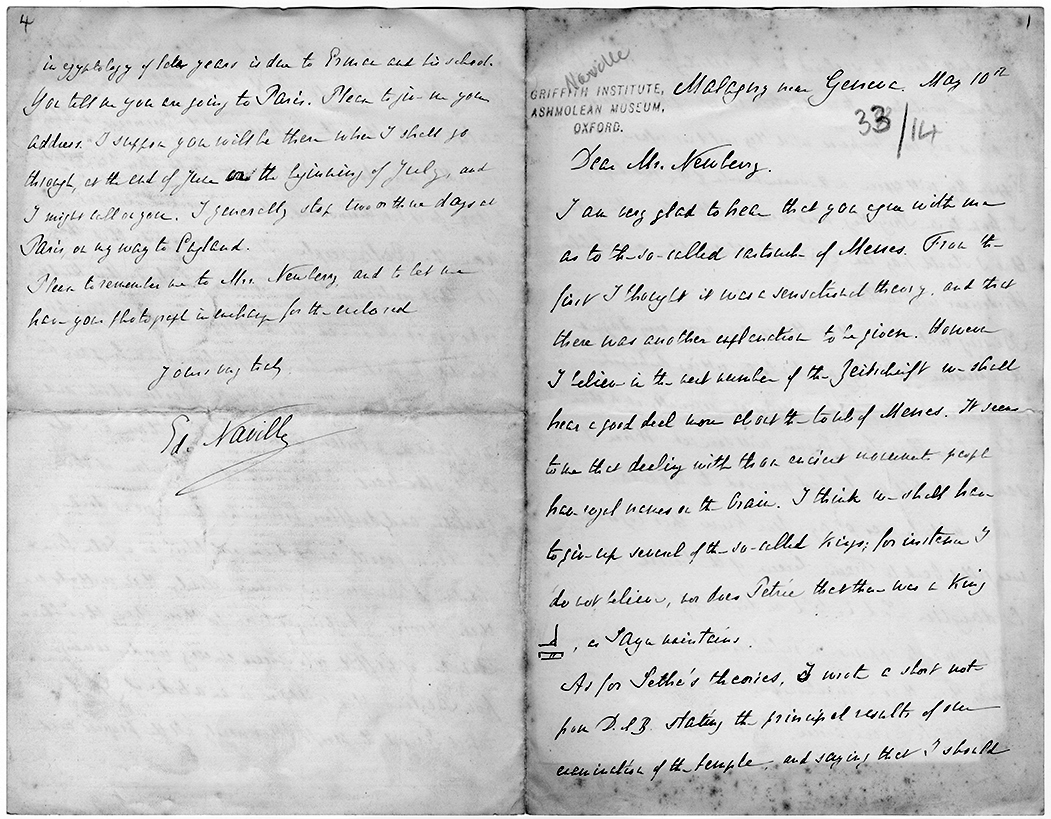 4
in egyptology of later years is due to Erman and his school.
You tell me you are going to Paris. Please to give me your
address. I suppose you will be there when I shall go
through, at the end of June or the beginning of July, and
I might call on you. I generally stop two or three days at
Paris, on my way to England.
Please to remember me to Mrs. Newberry, and to let me
have your photograph in exchange for the enclosed
Yours very truly,
Ed. Naville
1
Naville
GRIFFITH INSTITUTE,
ASHMOLEAN MUSEUM,
OXFORD.
Malagny near Geneva. May 10th
33/14
Dear Mr. Newberry.
I am very glad to hear that you agree with me
as to the so-called cartouche of Menes. From the
first I thought it was a sensational theory, and that
there was another explanation to be given. However
I believe in the next number of the Zeitschrift we shall
hear a good deal more about the tomb of Menes. It seems
to me that dealing with those ancient monuments people
have royal names on the brain. I think we shall have
to give up several of the so-called kings; for instance I
do not believe, nor does Petrie that there was a King
, as Sayce maintains.
As for Sethe's theories, I wrote a short note
from D.e.B. stating the principal results of our
examination of the temple, and saying that I should